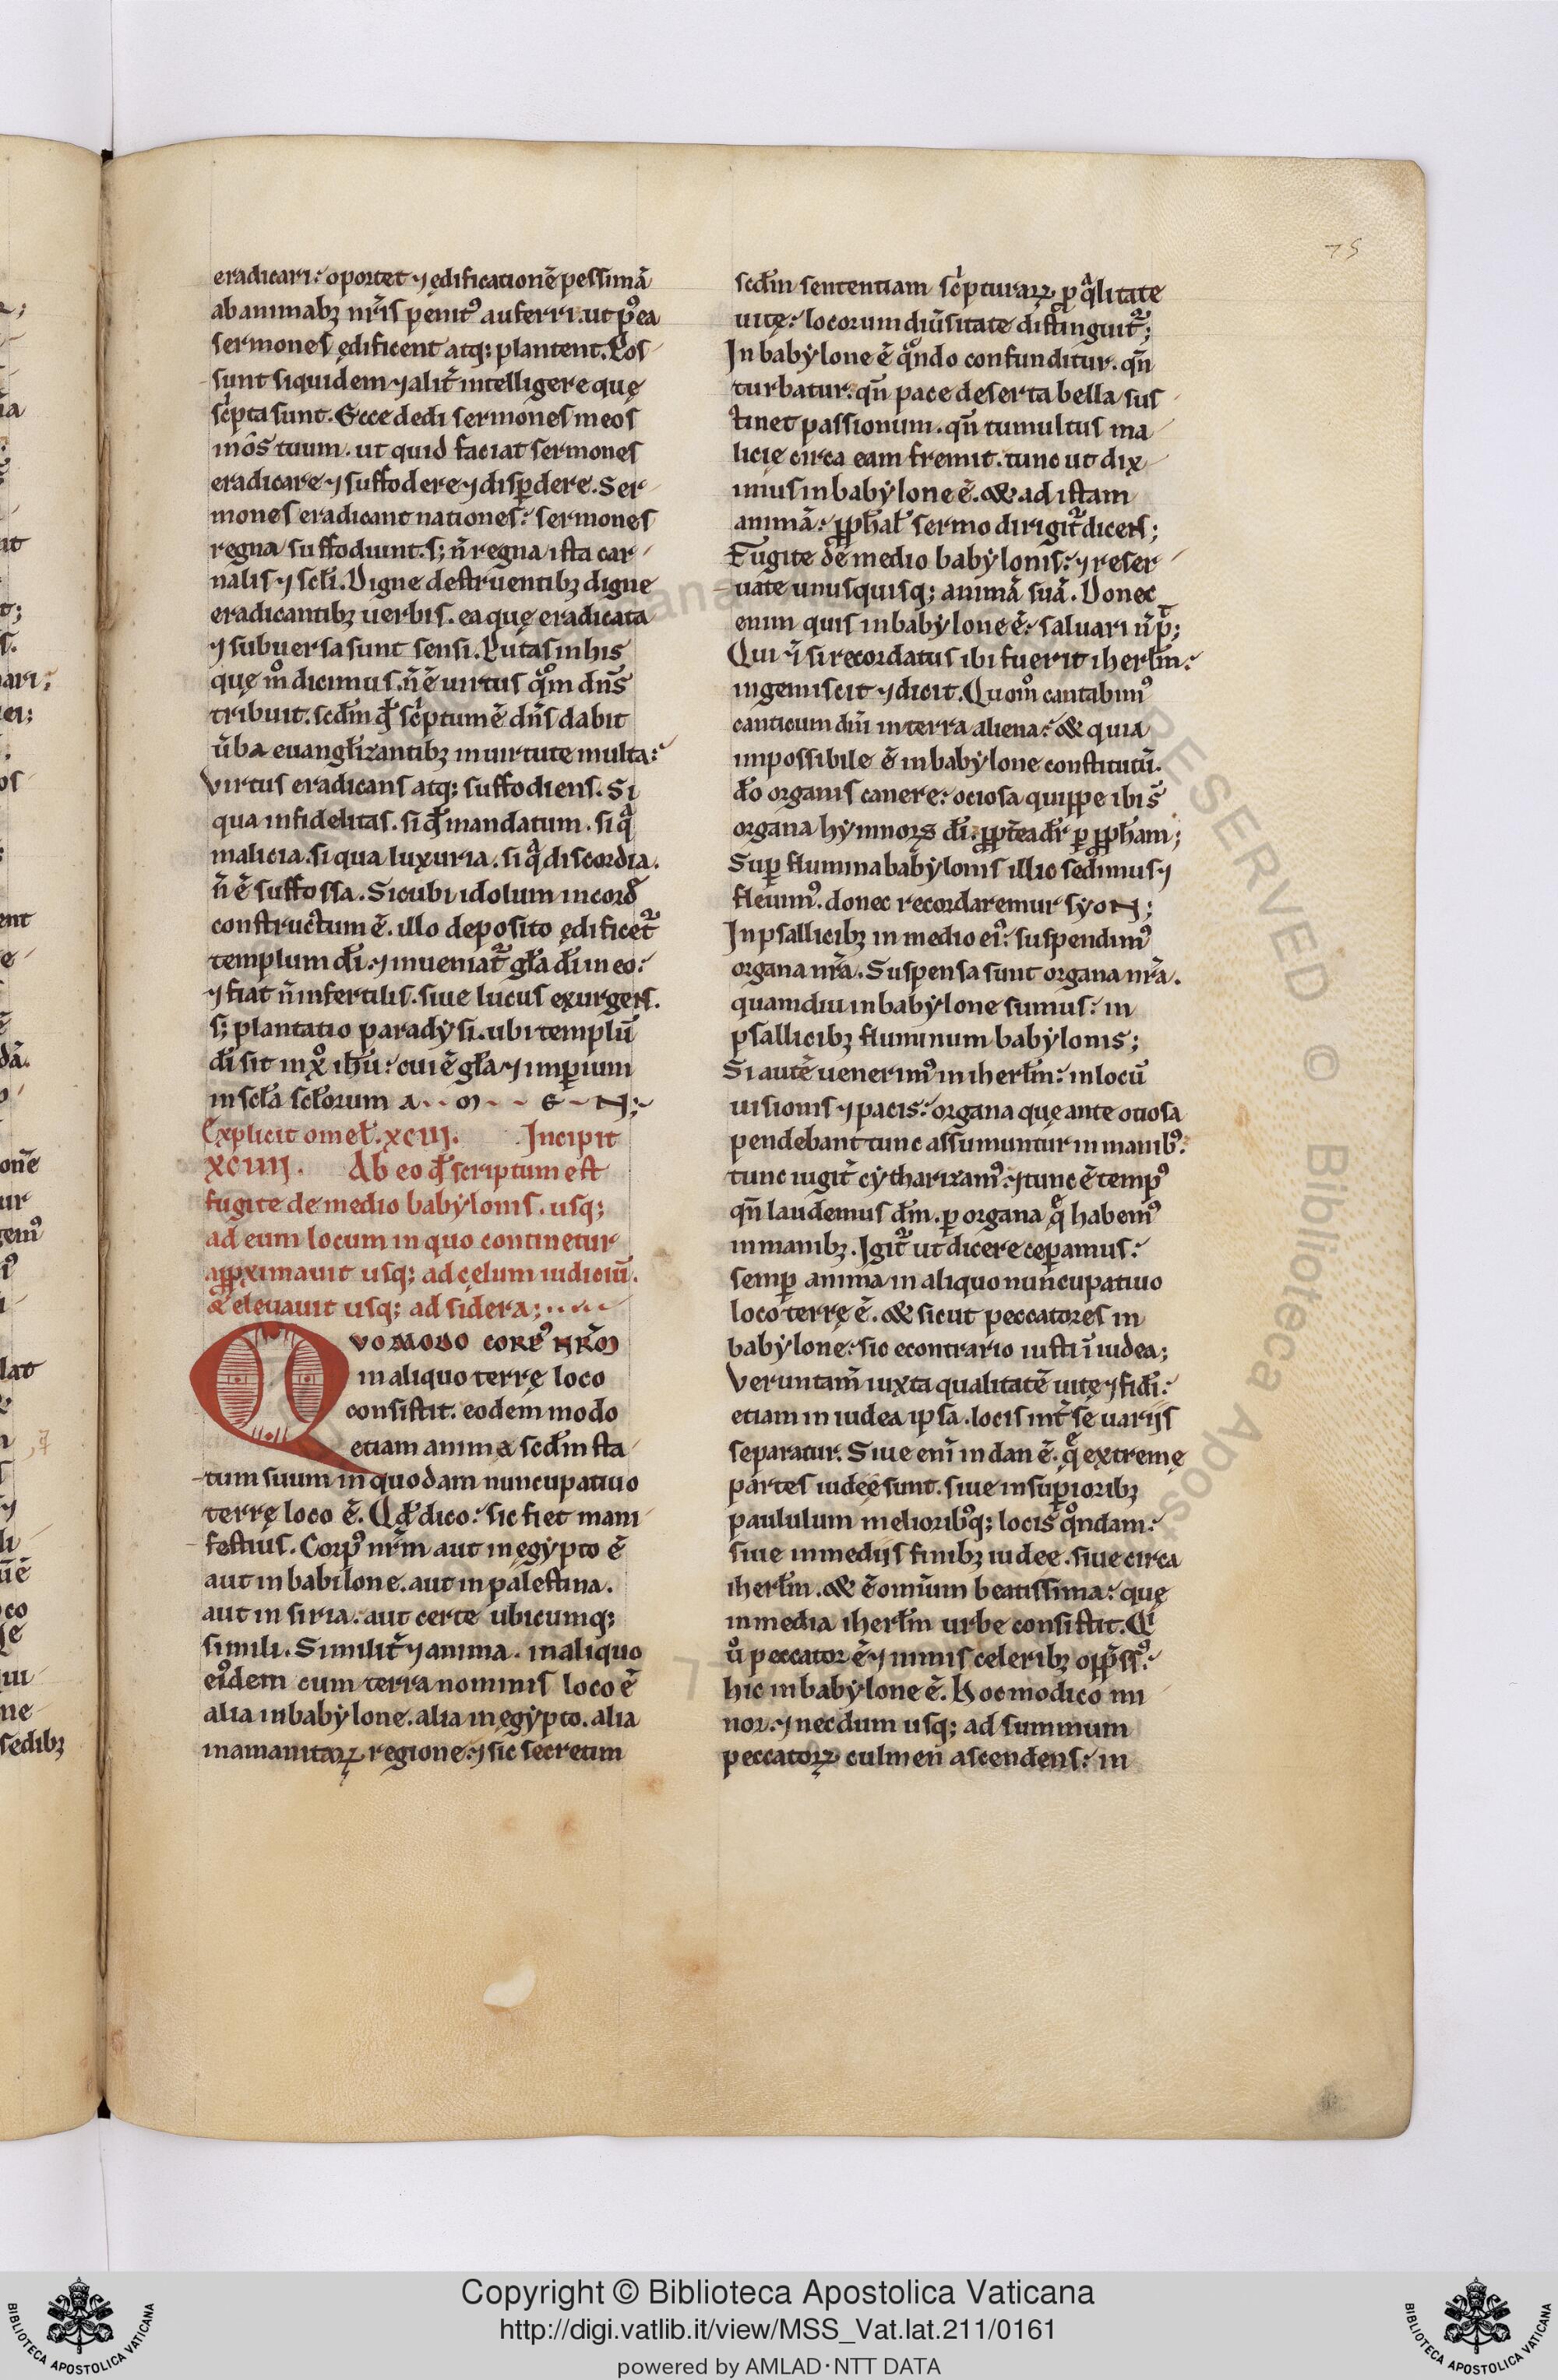 eradicari: oportet ⁊ ędificationē pessimā
ab animabꝫ nr̄is penitꝰ auferri. ut pꝰea
sermones ędificent atq; plantent. Pos
sunt siquidem ⁊ alit̄ intelligere quę
sc̄pta sunt. Ecce dedi sermones meos
in os tuum. ut quid faciat sermones
eradicare ⁊ suffodere ⁊ disꝑdere. Ser
mones eradicant nationes: sermones
regna suffodiunt. s; n̄ regna ista car
nalis ⁊ scłi. Digne destruentibꝫ digne
eradicantibꝫ uerbis. ea quę eradicata
⁊ subuersa sunt sensi. Putas in his
quę m̊ dicimus. n̄ ē uirtus q̊m dn̄s
tribuit. scd̄m qđ sc̄ptum ē dn̄s dabit
ūba euangłizantibꝫ in uirtute multa:
Virtus eradicans atq; suffodiens. Si
qua infidelitas. si qđ mandatum. si qᵃ
malicia. si qua luxuria. si qᵃ discordia.
n̄ ē suffossa. Sicubi idolum in cord̄
constructum ē. illo deposito ędificet᷑
templum dī. ⁊ inueniat᷑ gła dī in eo:
⁊ fiat n̄ infertilis. siue lucus exurgens.
s; plantatio paradẏsi. ubi templū
dī sit in xp̊ ihū: cui ē gła ⁊ imꝑium
in scła scłorum A M E N;
Explicit omeł. xciii. Incipit
xciiii. Ab eo qđ scriptum est
fugite de medio babẏlonis. usq;
ad eum locum in quo continetur
apꝓximauit usq; ad cęlum iudiciū.
& eleuauit usq; ad sidera;
QVOMODO CORPꝰ NRM̄
in aliquo terrę loco
consistit. eodem modo
etiam anima scd̄m sta
tum suum in quodam nuncupatiuo
terrę loco ē. Qđ dico: sic fiet mani
festius. Corpꝰ nr̄m aut in egẏpto ē
aut in babilone. aut in palestina.
aut in siria: aut certe ubicumq;
simili. Similit̄ ⁊ anima. in aliquo
eiꝰdem cum terra nominis loco ē
alia in babẏlone. alia in egẏpto. alia
in amanitaꝝ regione: ⁊ sic secretim
scd̄m sententiam sc̄pturaꝝ ꝓ qᵃlitate
uitę: locorum diūsitate distinguit᷑;
In babẏlone ē q̊ndo confunditur. qn̄
turbatur. qn̄ pace deserta bella sus
tinet passionum. qn̄ tumultus ma
licię circa eam fremit. tunc ut dix
imus in babẏlone ē. & ad istam
animā: ꝓph̄al sermo dirigit᷑ dicens;
Fugite de medio babẏlonis: ⁊ reser
uate unusquisq; animā suā. Donec
enim quis in babẏlone ē: saluari n̄ p̄t;
Qui & si recordatus ibi fuerit iherłm:
ingemiscit ⁊ dicit. Quom̊ cantabimꝰ
canticum dn̄i in terra aliena: & quia
impossibile ē in babẏlone constitutū.
dō organis canere: ociosa quippe ibi s̄
organa hẏmnorꝝ dī. ꝓpt̄ea dr̄ ꝑ ꝓph̄am;
Suꝑ flumina babẏlonis illic sedimus ⁊
fleuimꝰ. donec recordaremur sẏON;
In psallicibꝫ in medio eiꝰ: suspendimꝰ
organa nr̄a. Suspensa sunt organa nr̄a.
quamdiu in babẏlone sumus: in
psallicibꝫ fluminum babẏlonis;
Si autē uenerimꝰ in iherłm: in locū
uisionis ⁊ pacis: organa quę ante otiosa
pendebant tunc assumuntur in manibꝰ:
tunc iugit̄ cẏtharizamꝰ: ⁊ tunc ē tempꝰ
qn̄ laudemus dm̄. ꝑ organa q̄ habemꝰ
in manibꝫ. Igit᷑ ut dicere ceꝑamus:
semꝑ anima in aliquo nuncupatiuo
loco terrę ē. & sicut peccatores in
babẏlone: sic econtrario iusti ī iudea;
Veruntam̄ iuxta qualitatē uitę ⁊ fidi:
etiam in iudea ipsa. locis int̄ se uariis
separatur. Siue enī in dan ē. q̄ extremę
partes iudeę sunt. siue in suꝑioribꝫ
paululum melioribꝰq; locis q̊ndam:
siue in mediis finibꝫ iudee. siue circa
iherłm. & ē omnium beatissima: quę
in media iherłm urbe consistit. Qⁱ
ů peccator ē ⁊ nimis celeribꝫ opp̄ssꝰ:
hic in babẏlone ē. Hoc modico mi
nor. ⁊ necdum usq; ad summum
peccatoꝝ culmen ascendens: in
75
Copyright © Biblioteca Apostolica Vaticana
http://digi.vatlib.it/view/MSS_Vat.lat.211/0161
powered by AMLAD·NTT DATA
BIBLIOTECA APOSTOLICA VATICANA
BIBLIOTECA APOSTOLICA VATICANA